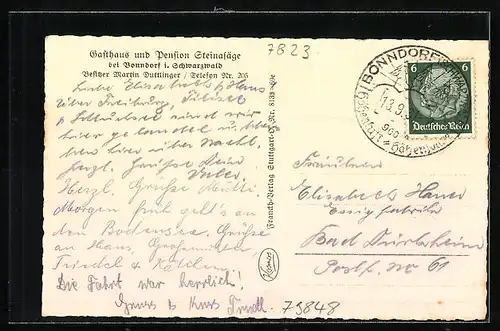 7823
Gasthaus und Pension Steinasäge
bei Bonndorf i. Schwarzwald
Besitzer Martin Duttlinger / Telefon Nr. 205
Liebe Elisabeth & Hans
über Freiburg, Titisee
& Schluchsee sind wir
hier gelandet u.
hier über Nacht.
Herzl. Grüße Dein
Vater
Herzl. Grüße Mutti.
Morgen früh geht's an
den Bodensee. Grüße
an Hans, Großmutter
Friedel &
Die Fahrt war herrlich!
Gruss & Kuss Trudl.
Franckh-Verlag Stuttgart
BONNDORF
6
6
Deutsches Reich
Fräulein
Elisabeth
Essigfabrik
Bad Dürkheim
Postf. No 61
73848